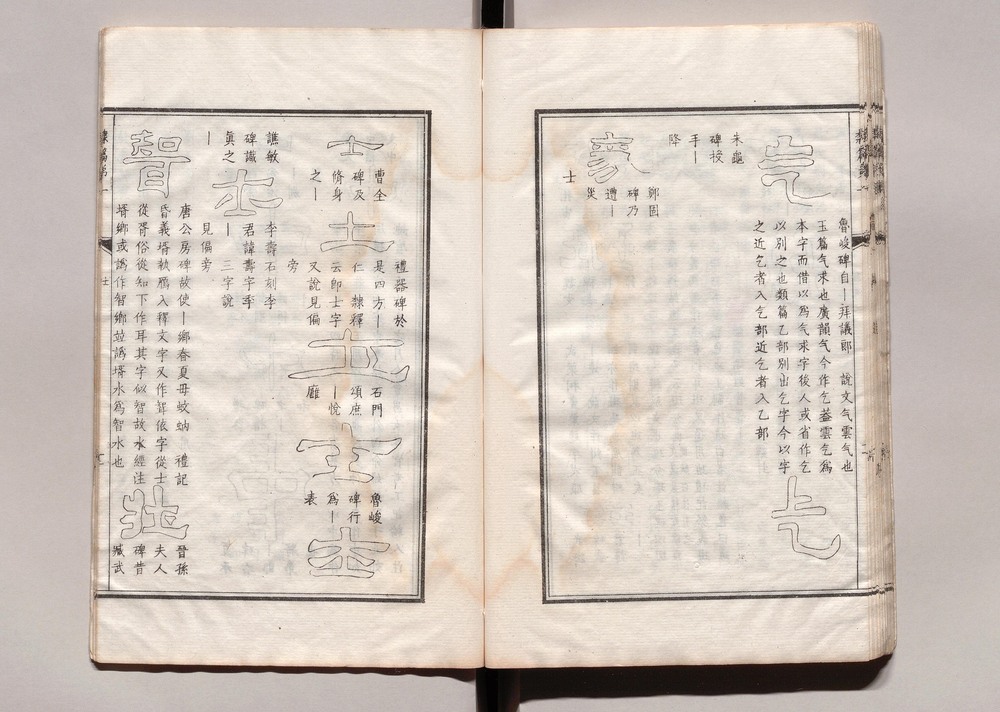 气
魯峻碑自｜拜議郎　說文气雲气也
玉篇气求也廣韻气今作乞蓋雲乞為
本字而借以為气求字後人或省作乞
以別之也類篇乙部別出乞字今以字
之近乞者入乞部近乞者入乙部
乞
朱龜
碑投
手｜
降
鄭固
碑乃
遭｜
災
士
士
曹全
碑及
脩身
之｜
士
禮器碑於
是四方｜
仁　隸釋
云即士字
又說見偏
旁
士
石門
頌庶
｜悅
雝
士
魯峻
碑行
為｜
表
士
譙敏
碑讖
真之
｜
士
李壽石刻李
君諱壽字季
｜　三字說
見偏旁
聟
唐公房碑故使｜鄉春夏毋蚊蚋　禮記
昏義壻執鴈入釋文字又作聟依字從士
從胥俗從知下作耳其字似智故水經注
壻鄉或譌作智鄉並譌壻水為智水也
壯
晉孫
夫人
碑昔
臧武